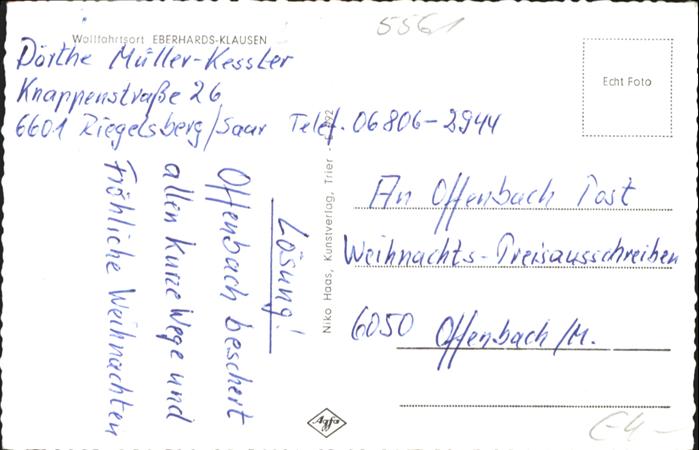 5561
Wallfahrtsort EBERHARDS-KLAUSEN
Dörthe Müller-Kessler
Knappenstraße 26
6601 Riegelsberg/Saar Telef. 06806-2944
Echt Foto
An Offenbach Post
Weihnachts-Preisausschreiben
6050 Offenbach/M.
Niko Haas, Kunstverlag, Trier
Lösung!
Offenbach beschert
allen kurze Wege und
Fröhliche Weihnachten
Agfa